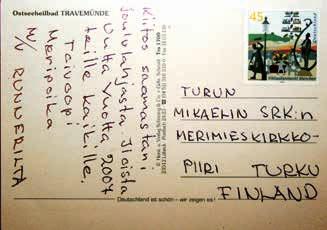 Ostseeheilbad TRAVEMÜNDE
Kiitos saamastani
joululahjasta. Iloista
Uutta Vuotta 2007
teille kaikille.
Toivoopi
Meripoika
M/V RUNNERILTA
45
TURUN
MIKAELIN SRK:n
MERIMIESKIRKKO-
PIIRI TURKU
FINLAND
Deutschland ist schön – wir zeigen es!